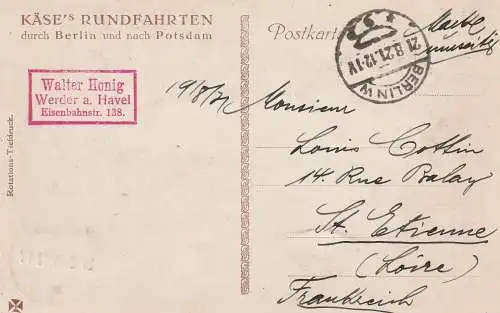 KÄSE's RUNDFAHRTEN
durch Berlin und nach Potsdam
Walter Honig
Werder a. Havel
Eisenbahnstr. 138.
Rotations-Tiefdruck.
19/8/21
Postkarte
Marke
umseitig
BERLIN W
21.8.21.12-1V
Monsieur
Louis Cottin
14. Rue Balay
St. Etienne
(Loire)
Frankreich